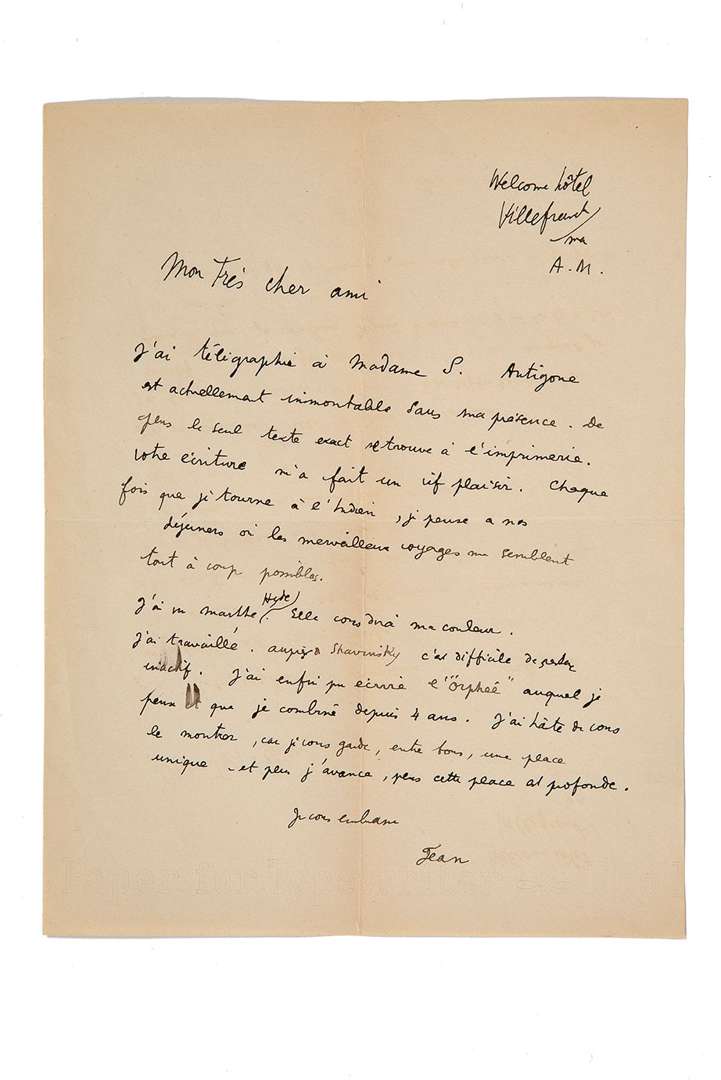 Welcome hôtel
Villefranche
s/ mer
A. M.
Mon très cher ami
J'ai téligraphié à Madame S. Antigone
est actuellement inmontable sans ma présence. De
plus le seul texte exact se trouve à l'imprimerie.
Votre écriture m'a fait un vif plaisir. Chaque
fois que je tourne à l'Indien, je pense a nos
déjeuners où les merveilleux voyages me semblent
tout à coup possibles.
J'ai vu Marthe (Hyde). Elle vous dira ma couleur.
J'ai travaillé. auprès Stravinsky c'est difficile de rester
inactif. J'ai enfin pu écrire l'"Orphée" auquel je
pense que je combine depuis 4 ans. J'ai hâte de vous
le montrer, car je vous garde, entre tous, une place
unique - et plus j'avance, plus cette place est profonde.
Je vous embrasse
Jean